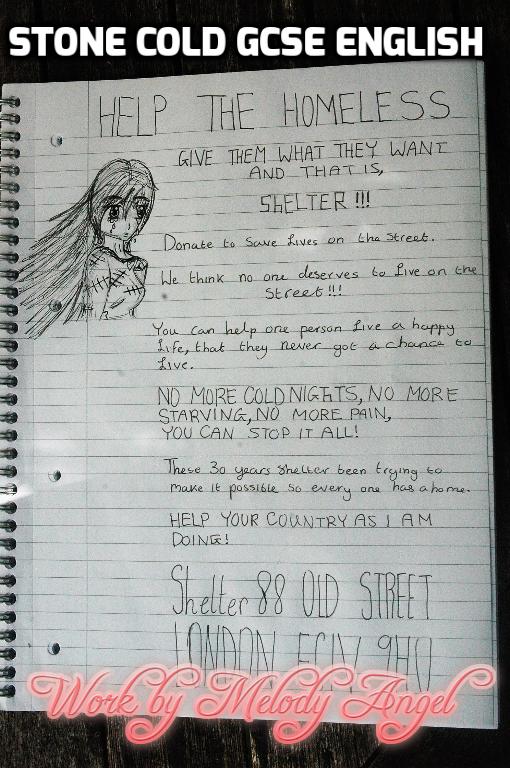 STONE COLD GCSE ENGLISH
HELP THE HOMELESS
GIVE THEM WHAT THEY WANT
AND THAT IS,
SHELTER !!!
Donate to save lives on the street.
We think no one deserves to live on the
street!!!
You can help one person live a happy
life, that they never got a chance to
live.
NO MORE COLD NIGHTS, NO MORE
STARVING, NO MORE PAIN,
YOU CAN STOP IT ALL!
These 30 years shelter been trying to
make it possible so every one has a home.
HELP YOUR COUNTRY AS I AM
DOING!
Shelter 88 OLD STREET
LONDON EC1V 9HU
Work by Melody Angel